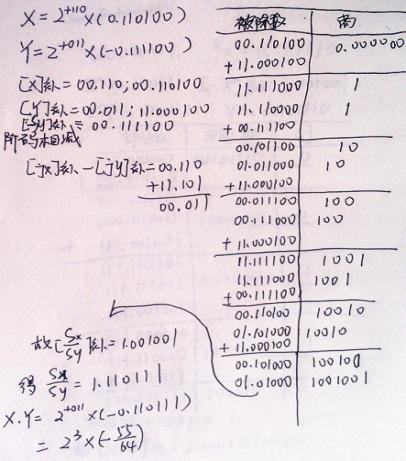 X = 2^{+110} × (0.110100)
Y = 2^{+011} × (-0.111100)
[X]补 = 00.110; 00.110100
[Y]补 = 00.011; 11.000100
[Sy]补 = 00.111100
阶码相减
[jx]补 - [jy]补 = 00.110
+11.101
00.011
故[Sx/Sy]补 = 1.001001
得 Sx/Sy = 1.110111
X.Y = 2^{+011} × (-0.110111)
= 2^3 × (-55/64)
被除数 商
00.110100 0.000000
+11.000100
11.111000 1
11.110000 1
+00.111100
00.101100 10
01.011000 10
+11.000100
00.011100 100
00.111000 100
+11.000100
11.111100 1001
11.111000 1001
+00.111100
00.110100 10010
01.101000 10010
+11.000100
00.101000 100100
01.01000 1001001